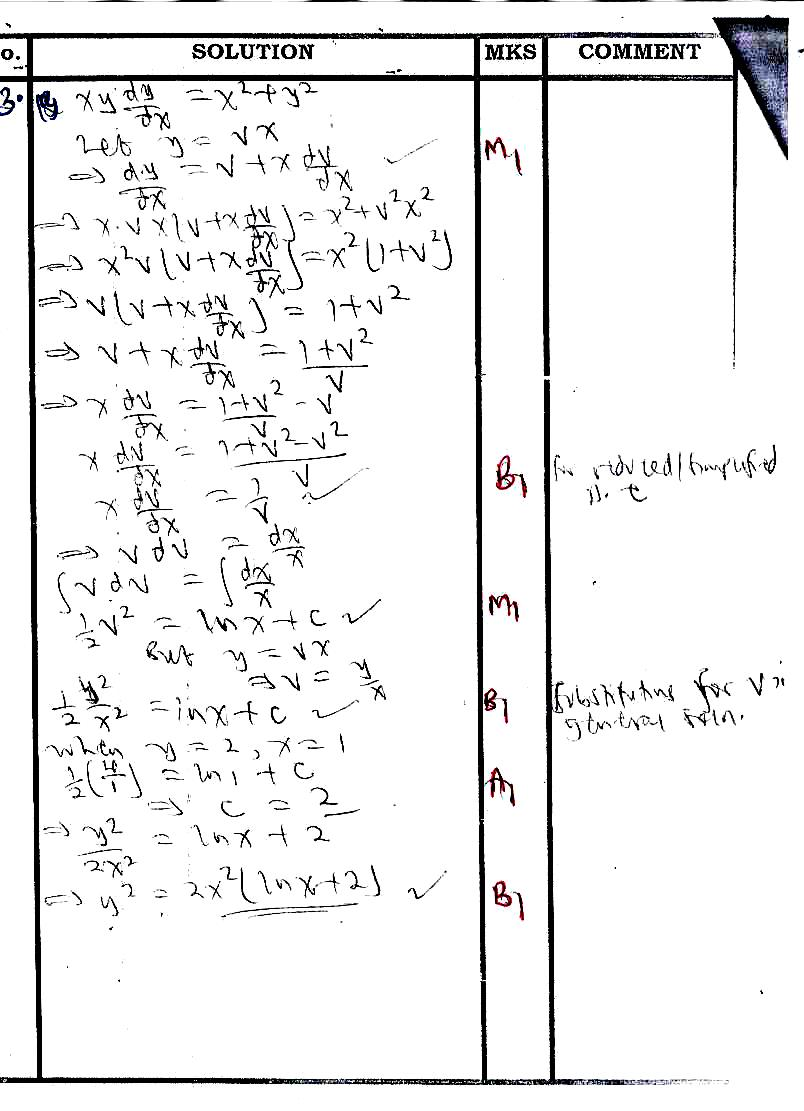 o. SOLUTION MKS COMMENT
3. xy dy/dx = x² + y²
Let y = vx
⇒ dy/dx = v + x dv/dx ✓ M1
⇒ x.vx(v + x dv/dx) = x² + v²x²
⇒ x²v(v + x dv/dx) = x²(1 + v²)
⇒ v(v + x dv/dx) = 1 + v²
⇒ v + x dv/dx = (1 + v²)/v
⇒ x dv/dx = (1 + v²)/v - v
x dv/dx = (1 + v² - v²)/v
x dv/dx = 1/v ✓ B1 for reduced/simplified
⇒ v dv = dx/x
∫ v dv = ∫ dx/x
½v² = ln x + c ✓ M1
But y = vx
⇒ v = y/x
½ y²/x² = ln x + c ✓ B1 substituting for v in
general soln.
when y = 2, x = 1
½(4/1) = ln 1 + c A1
⇒ c = 2
⇒ y²/2x² = ln x + 2
⇒ y² = 2x²(ln x + 2) ✓ B1